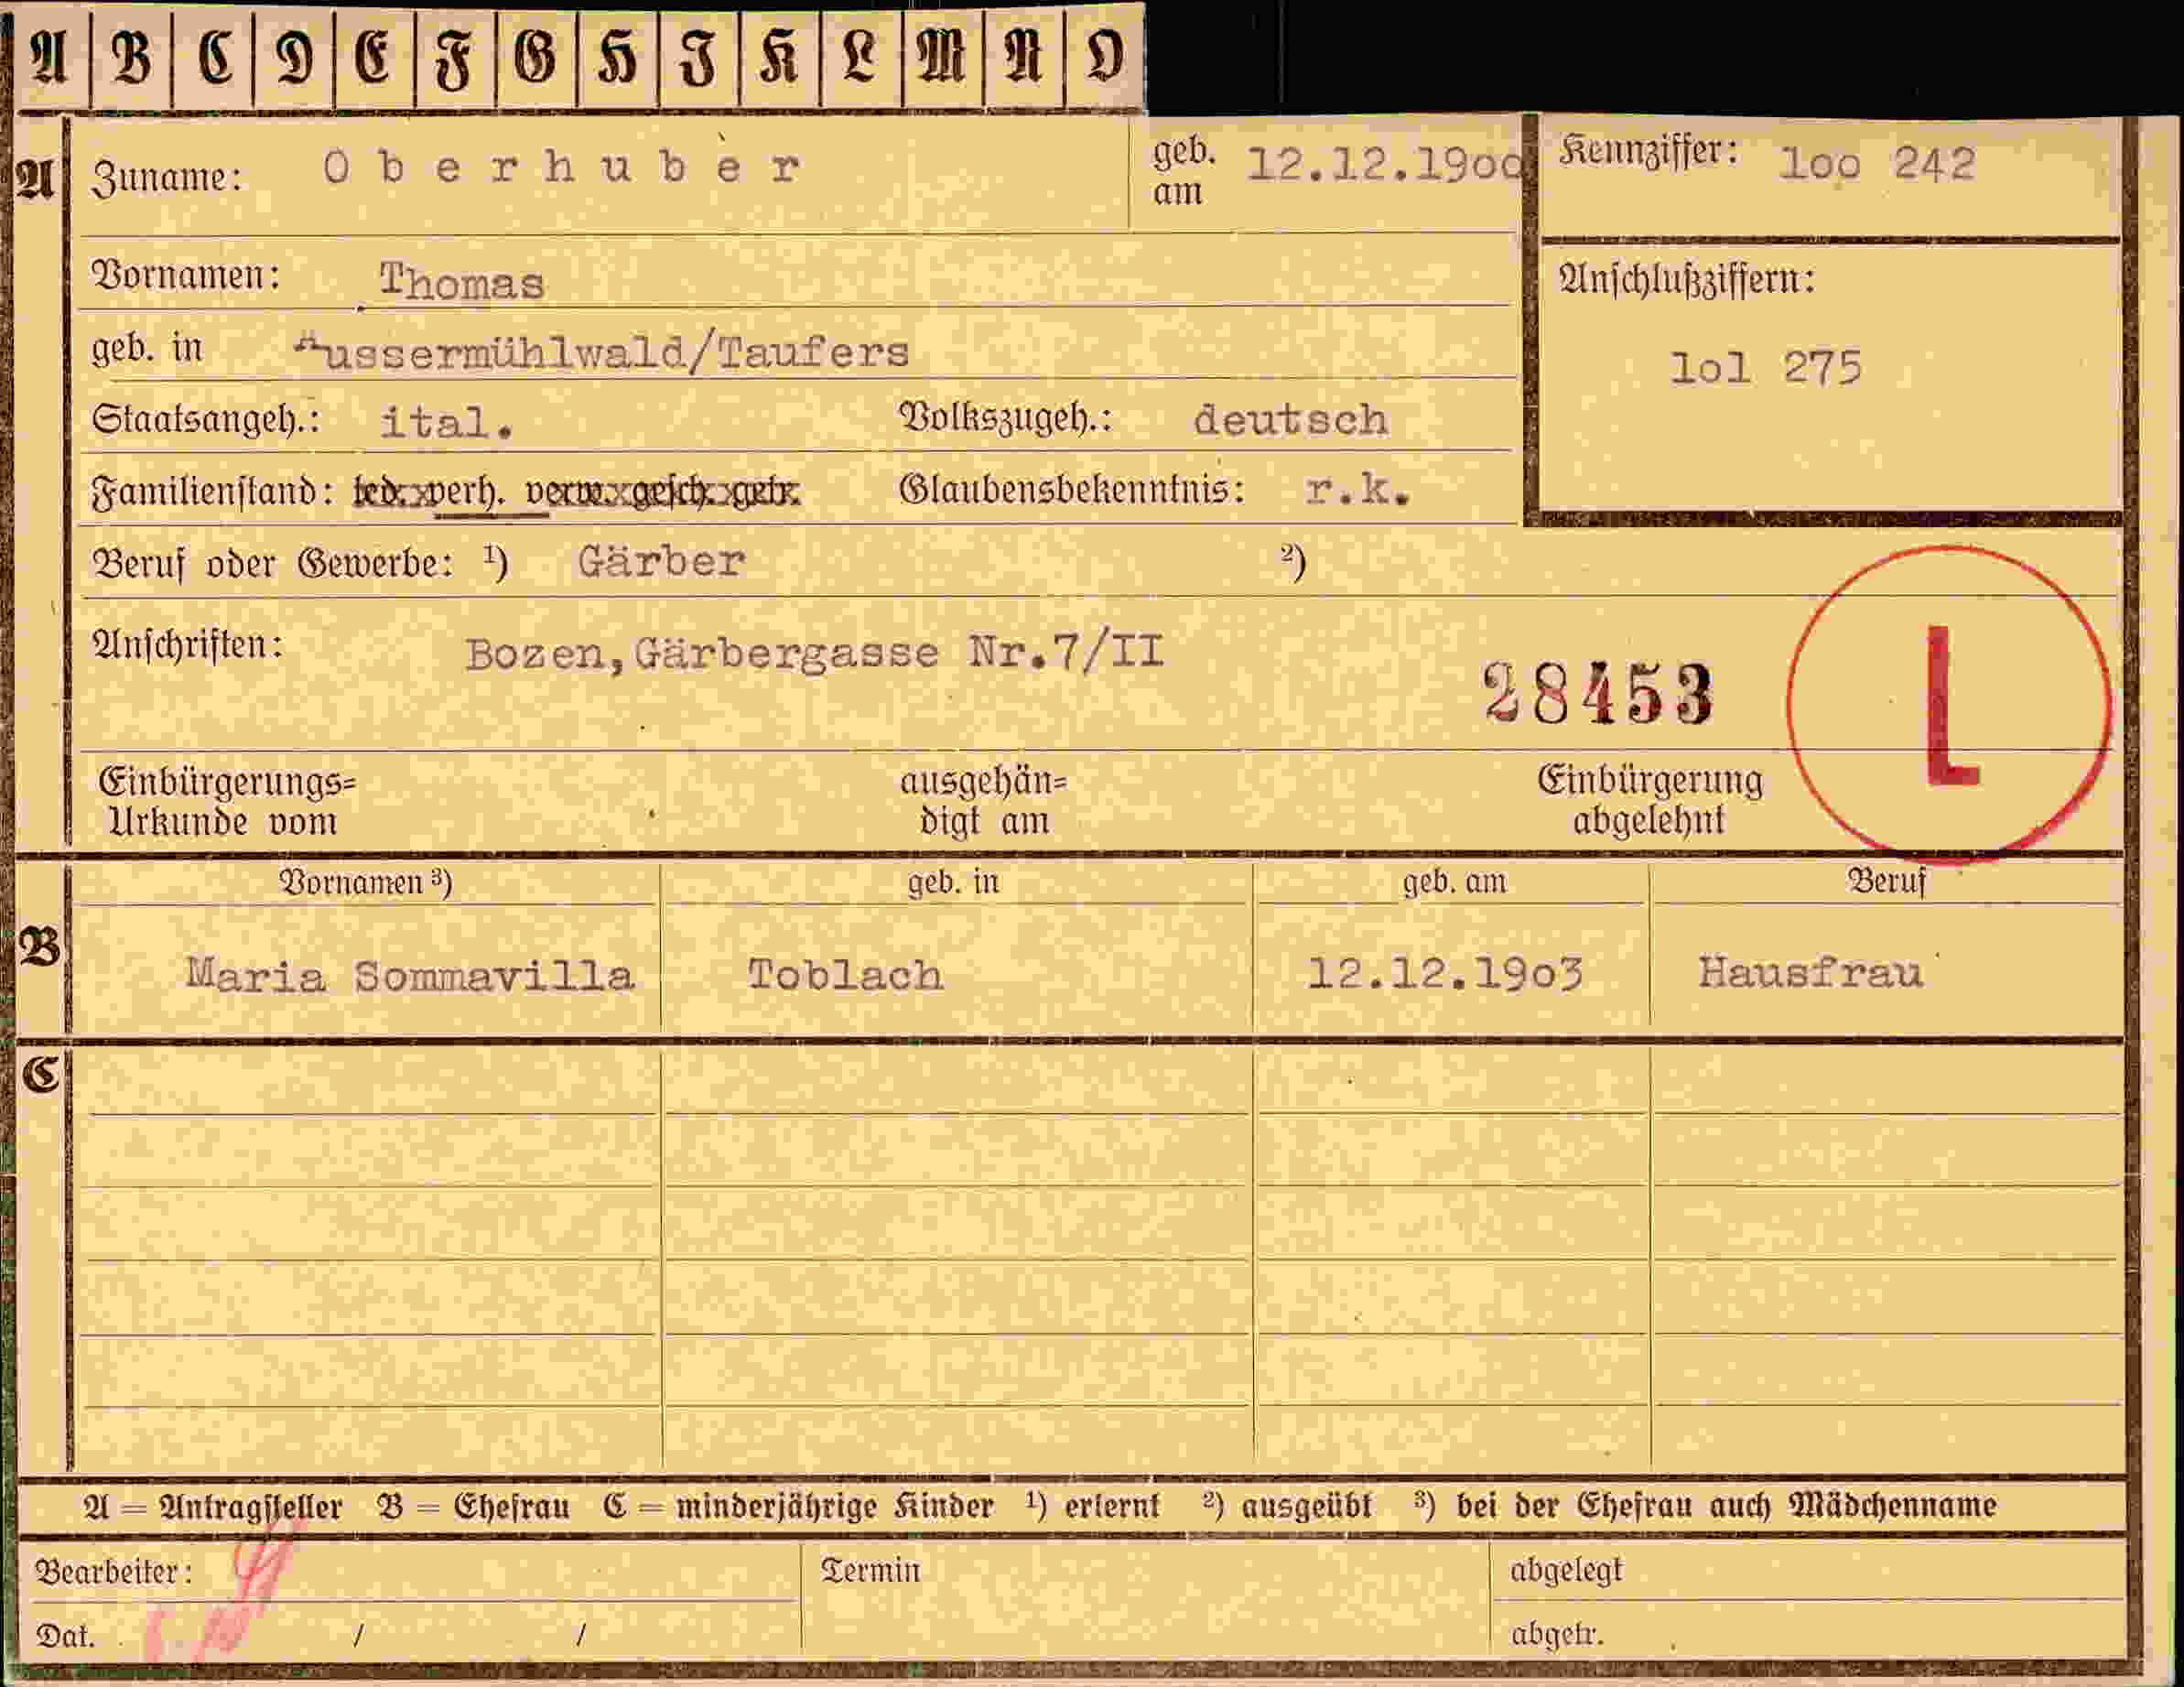 A B C D E F G H I K L M N O
A Zuname: Oberhuber geb. am 12.12.19oo Kennziffer: loo 242
Vornamen: Thomas Anschlußziffern:
geb. in Aussermühlwald/Taufers lol 275
Staatsangeh.: ital. Volkszugeh.: deutsch
Familienstand: led. verh. verw. gesch. getr. Glaubensbekenntnis: r.k.
Beruf oder Gewerbe: ¹) Gärber ²)
Anschriften: Bozen,Gärbergasse Nr.7/II
28453 L
Einbürgerungs= Urkunde vom ausgehän= digt am Einbürgerung abgelehnt
Vornamen ³) geb. in geb. am Beruf
B Maria Sommavilla Toblach 12.12.19o3 Hausfrau
C
A = Antragsteller B = Ehefrau C = minderjährige Kinder ¹) erlernt ²) ausgeübt ³) bei der Ehefrau auch Mädchenname
Bearbeiter: Termin abgelegt
Dat. / / abgetr.